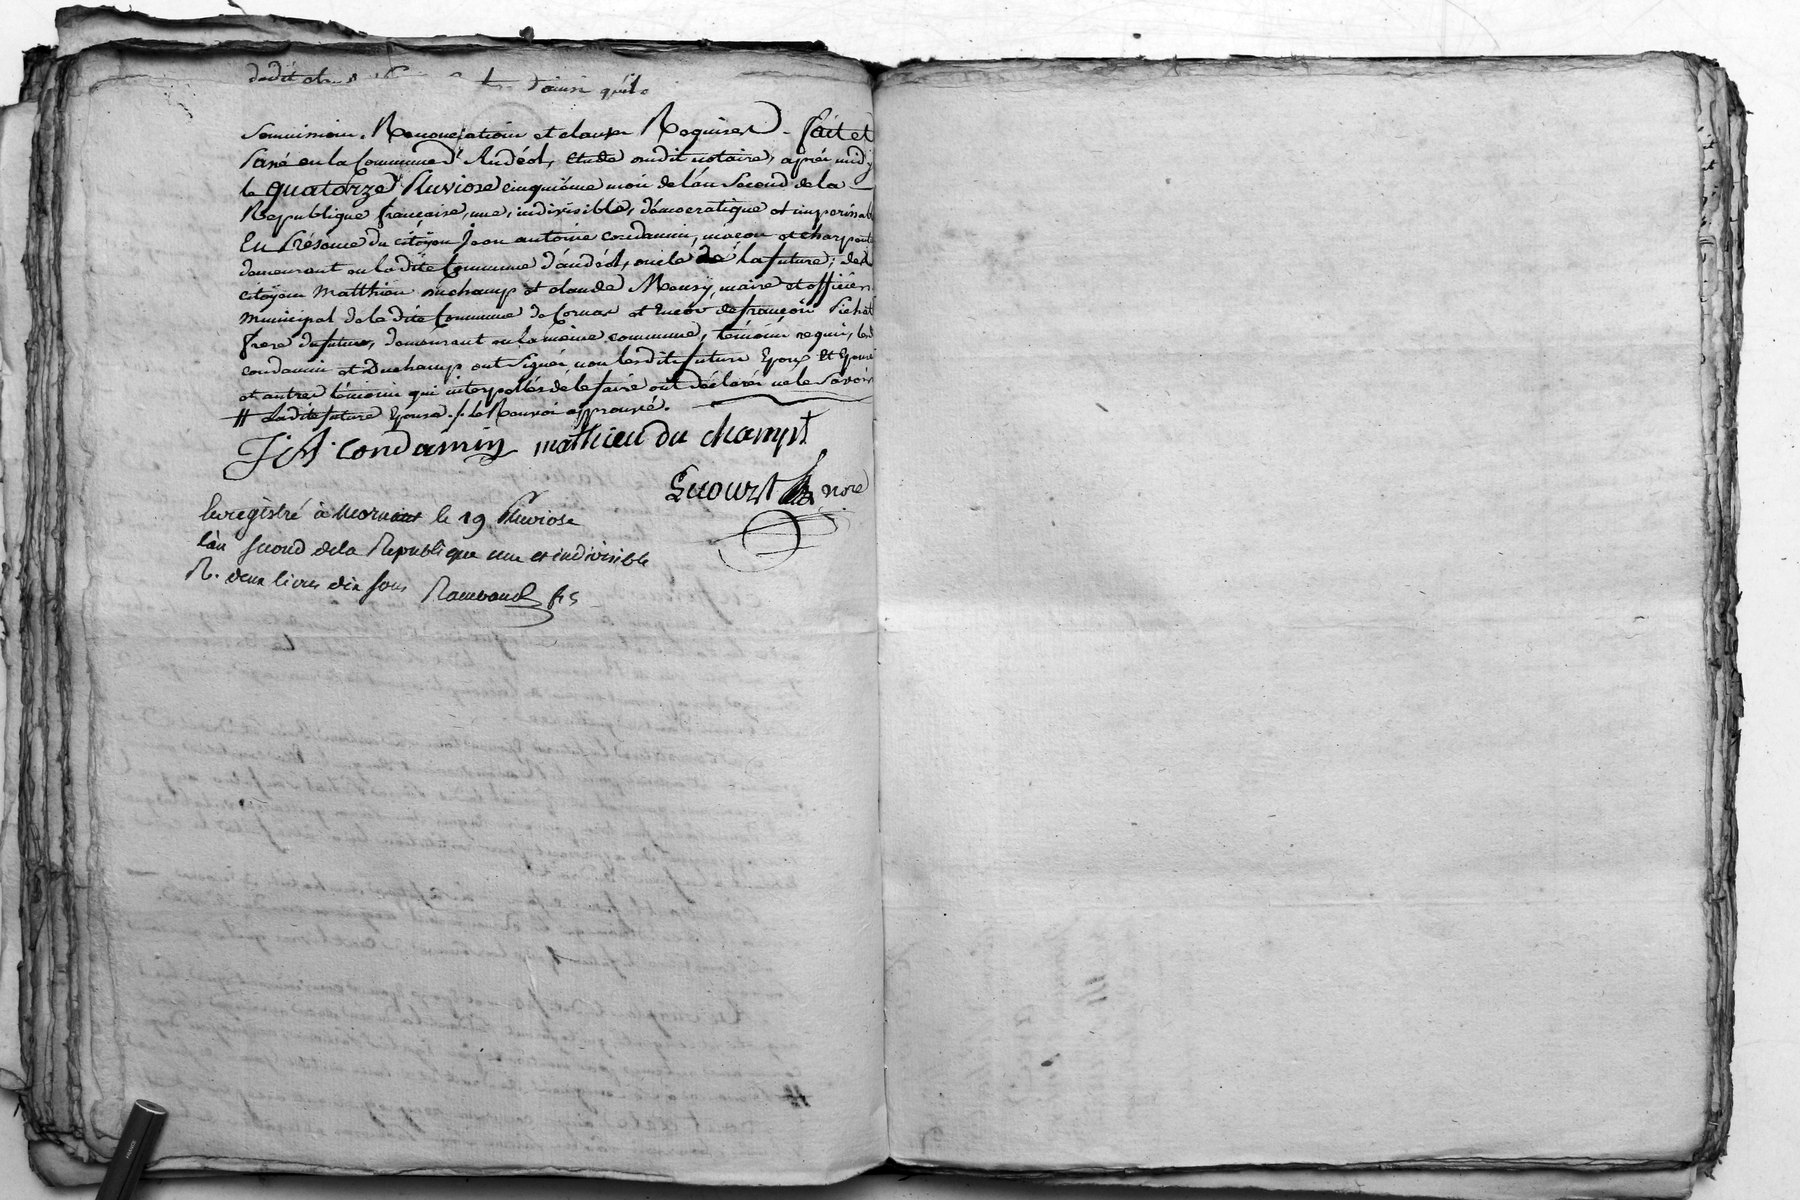 dedit ainsi quil
Soumission, Renonciation et clauses Requises. Fait et
Passé en la Commune d'Andéol, etude dudit notaire, après midy
le quatorze Pluviose cinquième mois de l'an Second de la
Republique française, une, indivisible, démocratique et imperissable
En Présence du citoyen Jean antoine condamin, maçon et charpentier
demeurant en ladite Commune d'andéol, oncle de la future; des
citoyens Matthieu duchamp et claude Mousy, maire et officier
Municipal de ladite Commune de Cornas et encor de françois Pichat
frere du futur, demeurant en la même commune, témoins requis, les
condamin et Duchamp ont Signés, non lesdits futurs Epoux et Epouse
et autres témoins qui interpellés de le faire ont déclarés ne le Savoir
# Ladite future Epouse. / le Renvoi approuvé.
J. A. condamin mathieu du champt
nore
Enregistré à Mornant le 19 Pluviose
l'an second de la Republique une et indivisible
R. deux livres dix sous